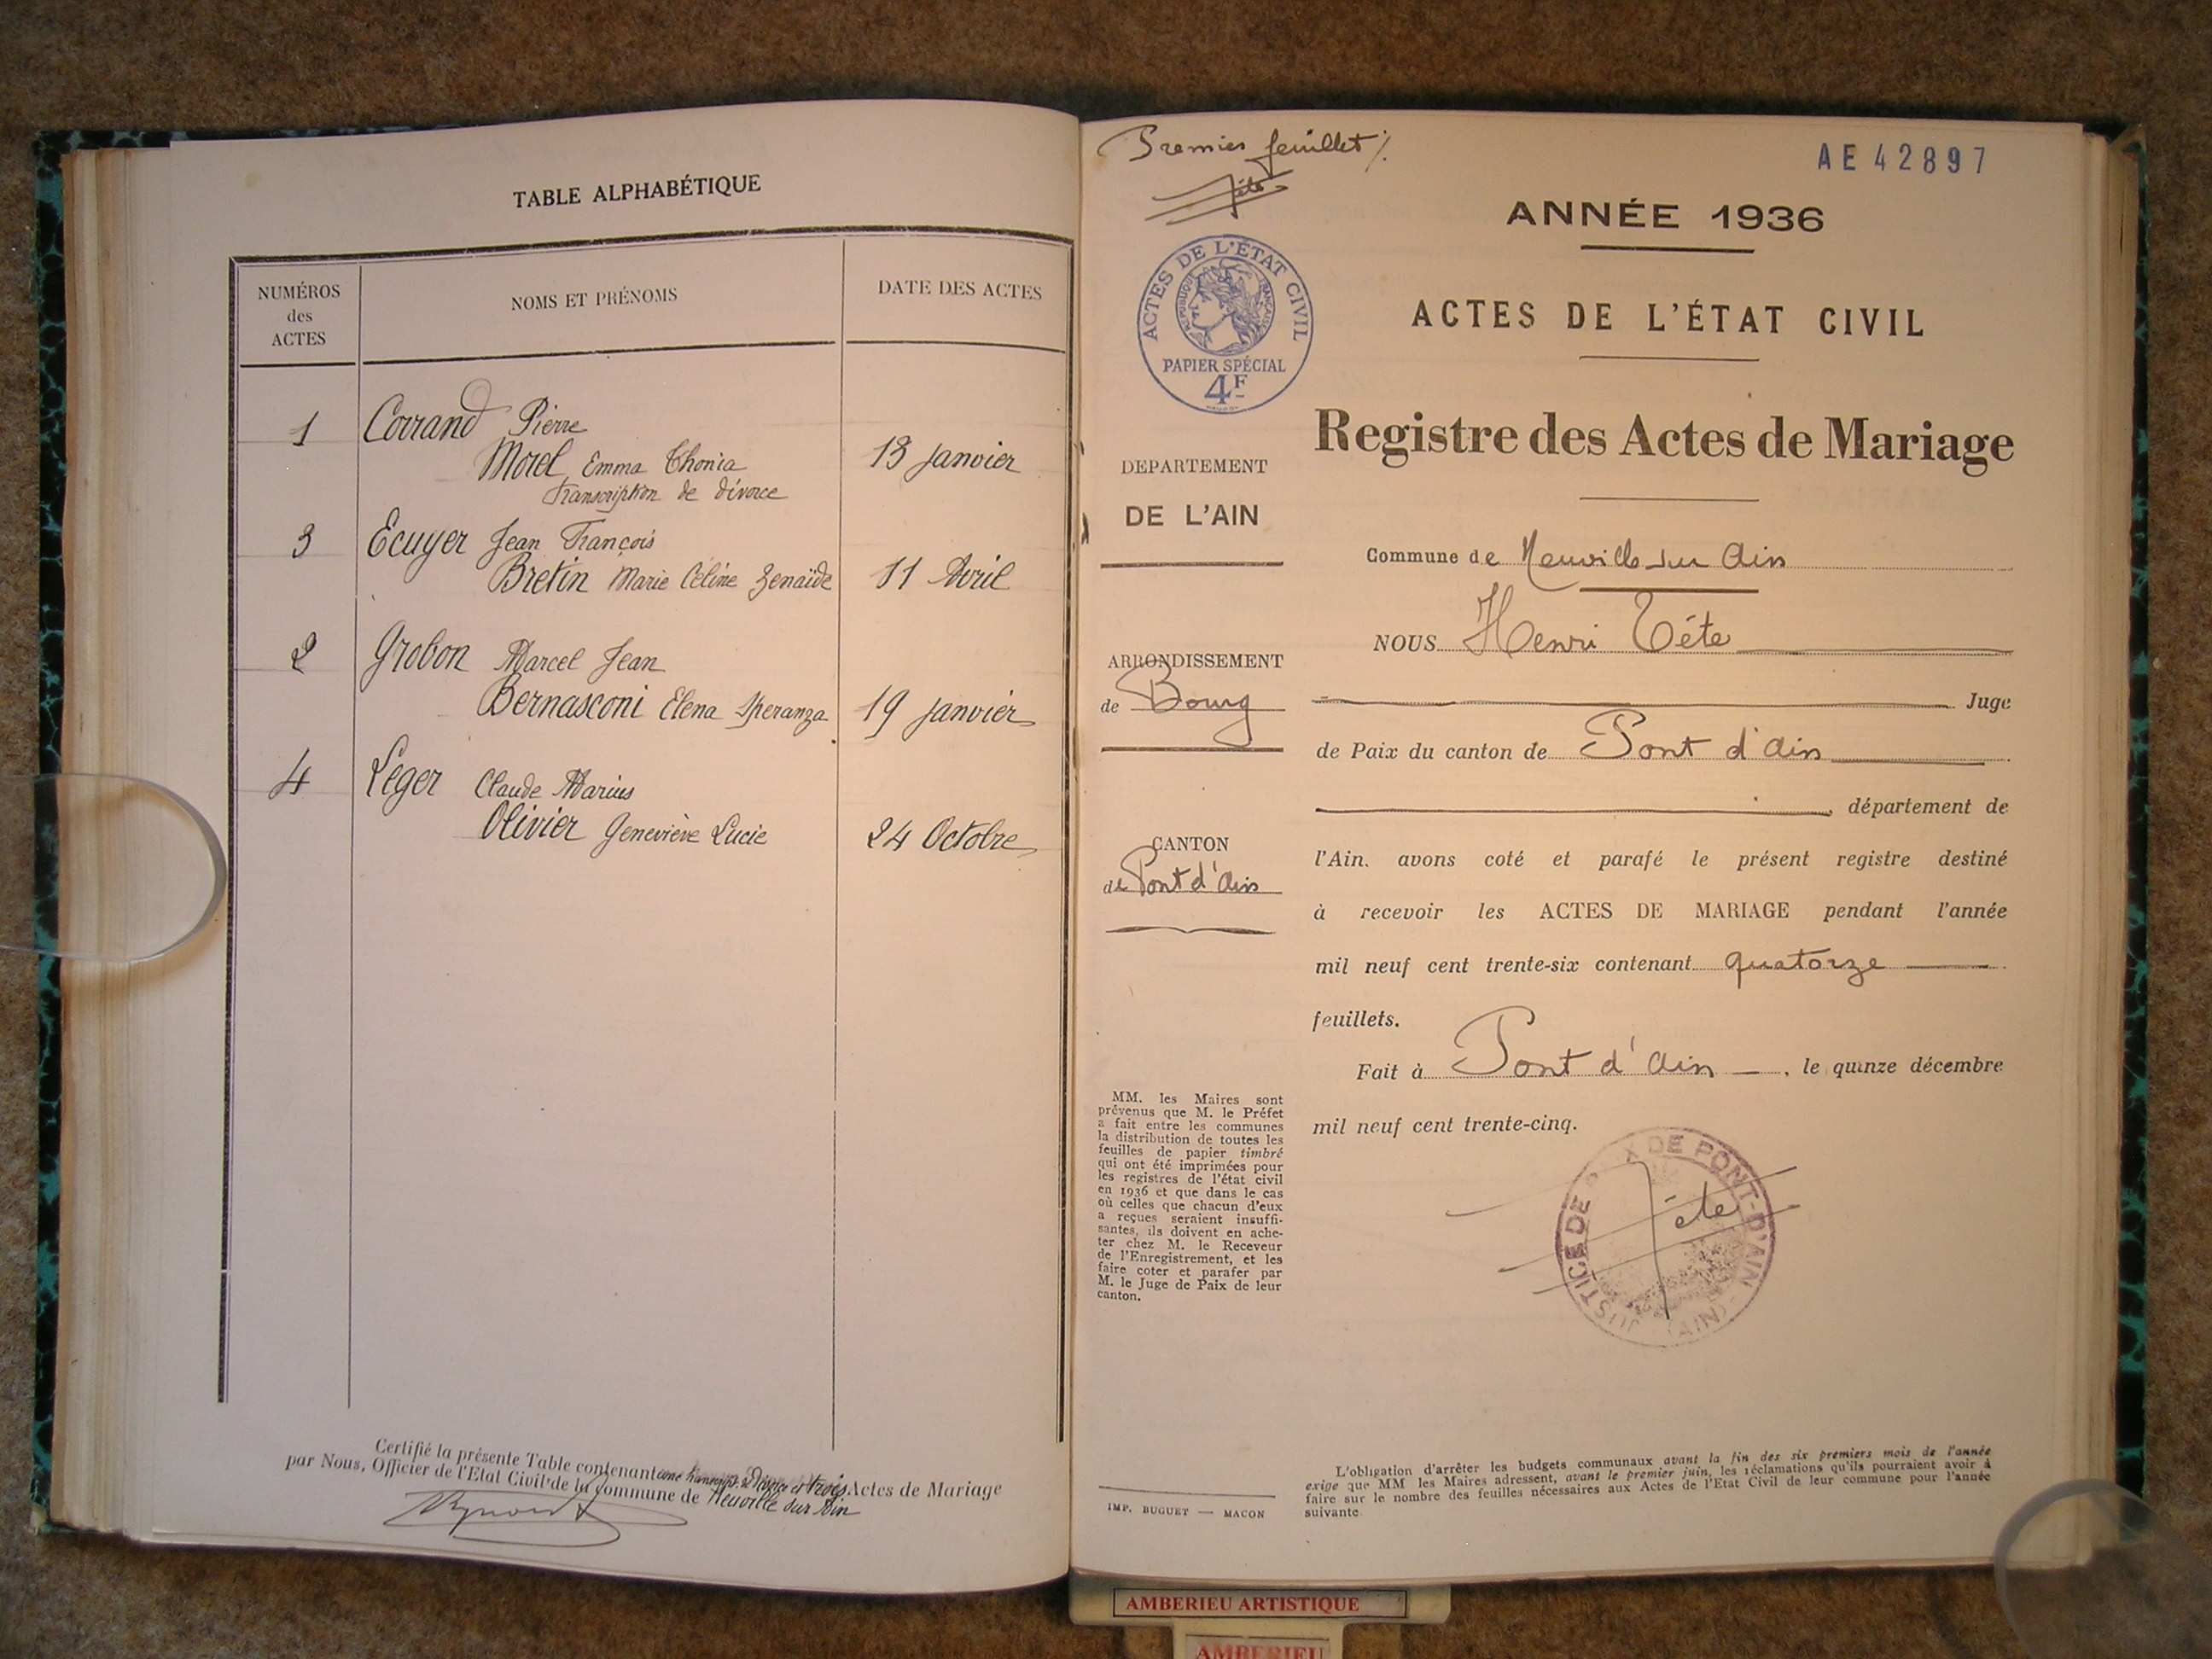 TABLE ALPHABÉTIQUE
NUMÉROS
des
ACTES
NOMS ET PRÉNOMS
DATE DES ACTES
1 Corrand Pierre
Morel Emma Thonia 13 Janvier
Transcription de divorce
3 Ecuyer Jean François
Bretin Marie Céline Zenaïde 11 Avril
2 Grobon Marcel Jean
Bernasconi Elena Speranza 19 Janvier
4 Léger Claude Marius
Olivier Geneviève Lucie 24 Octobre
Certifié la présente Table contenant une et trois Actes de Mariage
par Nous, Officier de l'Etat Civil de la Commune de Neuville sur Ain
Premier feuillet
Tête
AE 42897
ANNÉE 1936
ACTES DE L'ÉTAT CIVIL
RÉPUBLIQUE FRANÇAISE
PAPIER SPÉCIAL
4F
ACTES DE L'ÉTAT CIVIL
Registre des Actes de Mariage
DEPARTEMENT
DE L'AIN
Commune de Neuville sur Ain
NOUS Henri Tête
ARRONDISSEMENT
de Bourg
Juge
de Paix du canton de Pont d'Ain
, département de
CANTON
de Pont d'Ain
l'Ain, avons coté et parafé le présent registre destiné
à recevoir les ACTES DE MARIAGE pendant l'année
mil neuf cent trente-six contenant quatorze
feuillets.
Fait à Pont d'Ain, le quinze décembre
mil neuf cent trente-cinq.
MM. les Maires sont
prévenus que M. le Préfet
a fait entre les communes
la distribution de toutes les
feuilles de papier timbré
qui ont été imprimées pour
les registres de l'état civil
en 1936 et que dans le cas
où celles que chacun d'eux
a reçues seraient insuffi-
santes, ils doivent en ache-
ter chez M. le Receveur
de l'Enregistrement, et les
faire coter et parafer par
M. le Juge de Paix de leur
canton.
JUSTICE DE PAIX DE PONT-D'AIN
(AIN)
Tête
IMP. BUGUET — MACON
L'obligation d'arrêter les budgets communaux avant la fin des six premiers mois de l'année
exige que MM les Maires adressent, avant le premier juin, les réclamations qu'ils pourraient avoir à
faire sur le nombre des feuilles nécessaires aux Actes de l'Etat Civil de leur commune pour l'année
suivante.
AMBERIEU ARTISTIQUE
AMBERIEU